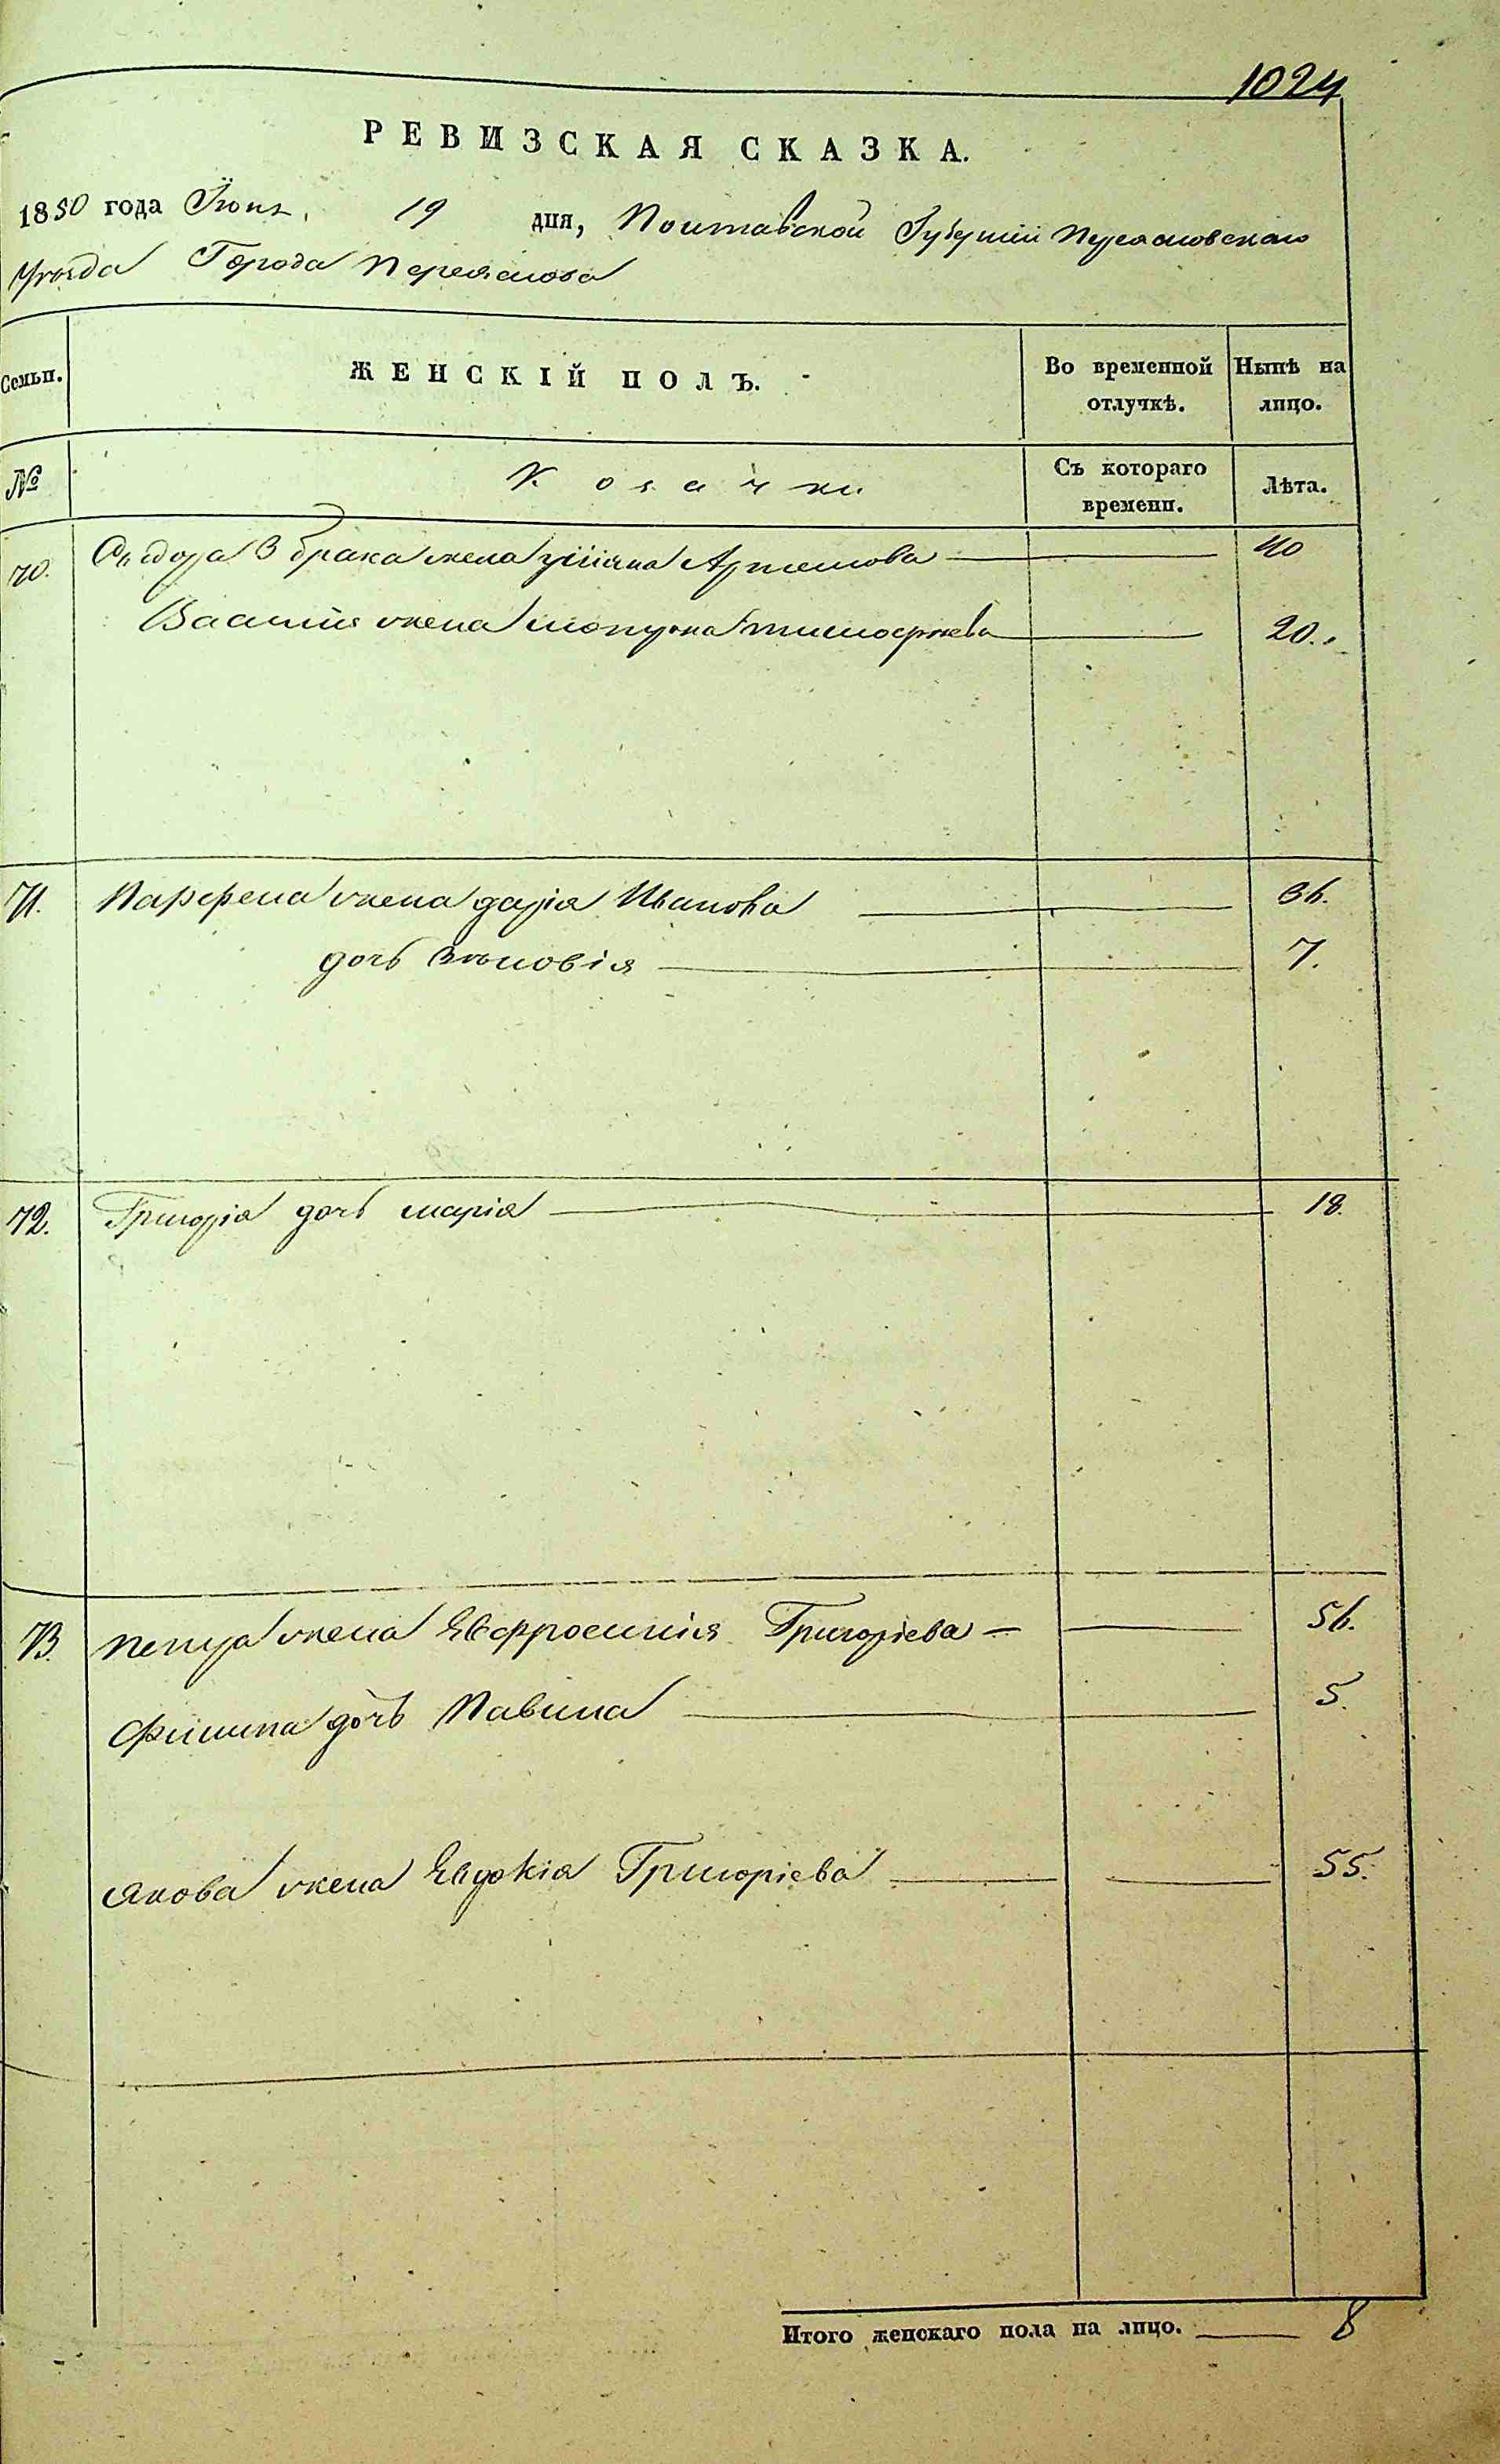 1024
РЕВИЗСКАЯ СКАЗКА.
1850 года Іюня 19 дня, Полтавской Губерніи Переяславскаго
Уезда Города Переяслова
Семьи. ЖЕНСКІЙ ПОЛЪ. Во временной отлучкѣ. Нынѣ на лицо.
№ Козачки Съ котораго времени. Лѣта.
70. Сидора 3 брака жена Уліяна Артемова 40
Василія жена Тимофѣева 20.
71. Парфена жена Дарія Иванова 36.
дочь Зѣновія 7.
72. Григорія дочь Марія 18.
73. Петра жена Евфросинія Григоріева 56.
Филипа дочь Павлина 5.
Якова жена Евдокія Григоріева 55.
Итого женскаго пола на лицо. 8